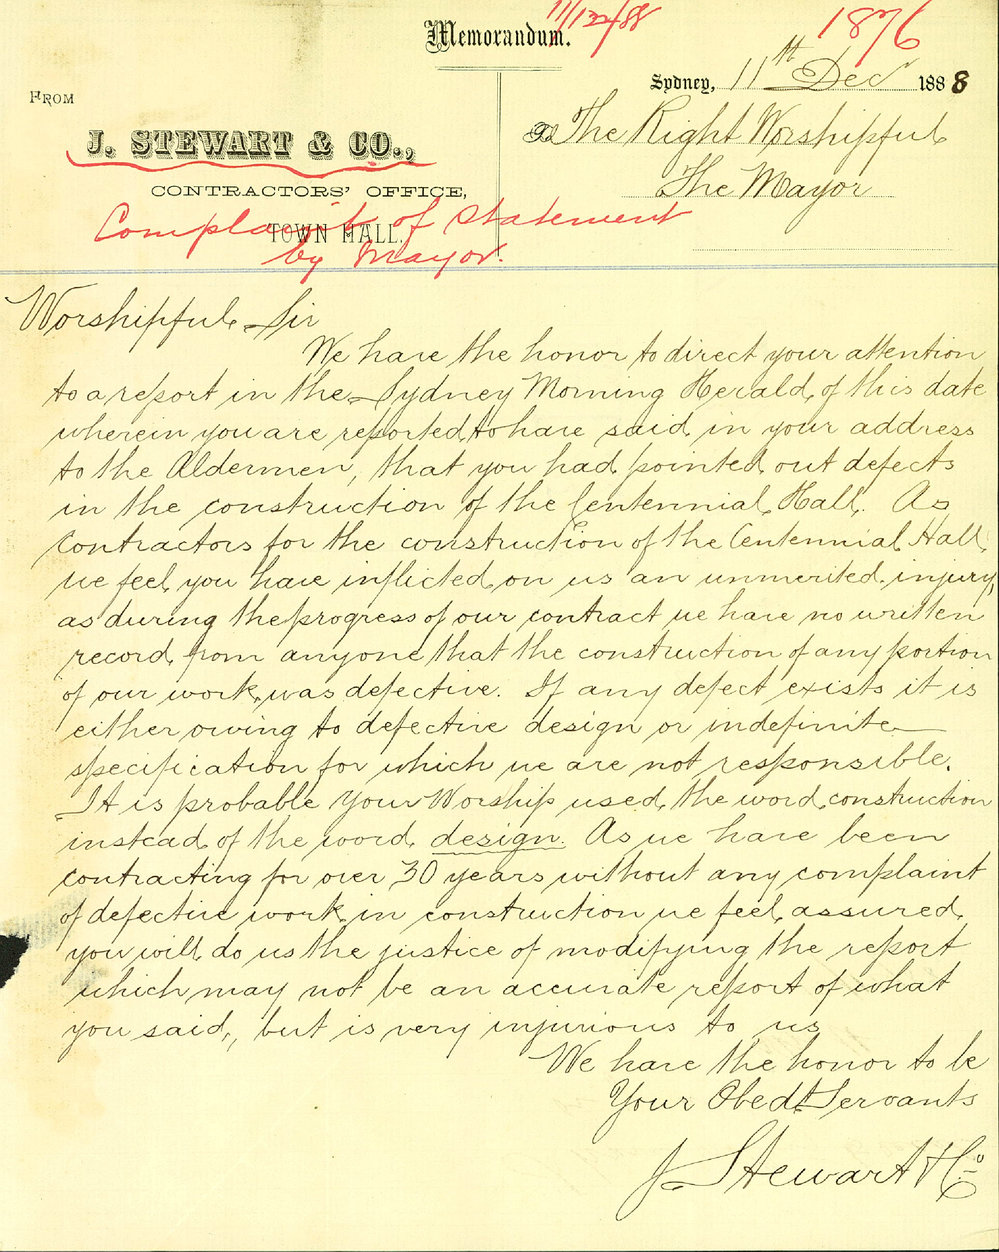 11/12/88
1876
Memorandum.
Sydney, 11th Dec 1888
FROM
J. STEWART & CO.,
CONTRACTORS' OFFICE,
TOWN HALL.
To The Right Worshipful
The Mayor
Complaint of Statement
by Mayor.
Worshipful Sir
We have the honor to direct your attention
to a report in the Sydney Morning Herald of this date
wherein you are reported to have said in your address
to the Aldermen, that you had pointed out defects
in the construction of the Centennial Hall. As
Contractors for the construction of the Centennial Hall
we feel you have inflicted on us an unmerited injury,
as during the progress of our contract we have no written
record from anyone that the construction of any portion
of our work was defective. If any defect exists it is
either owing to defective design or indefinite
specification for which we are not responsible.
It is probable Your Worship used the word construction
instead of the word design. As we have been
contracting for over 30 years without any complaint
of defective work in construction we feel assured
you will do us the justice of modifying the report
which may not be an accurate report of what
you said, but is very injurious to us
We have the honor to be
Your Obedt Servants
J Stewart & Co